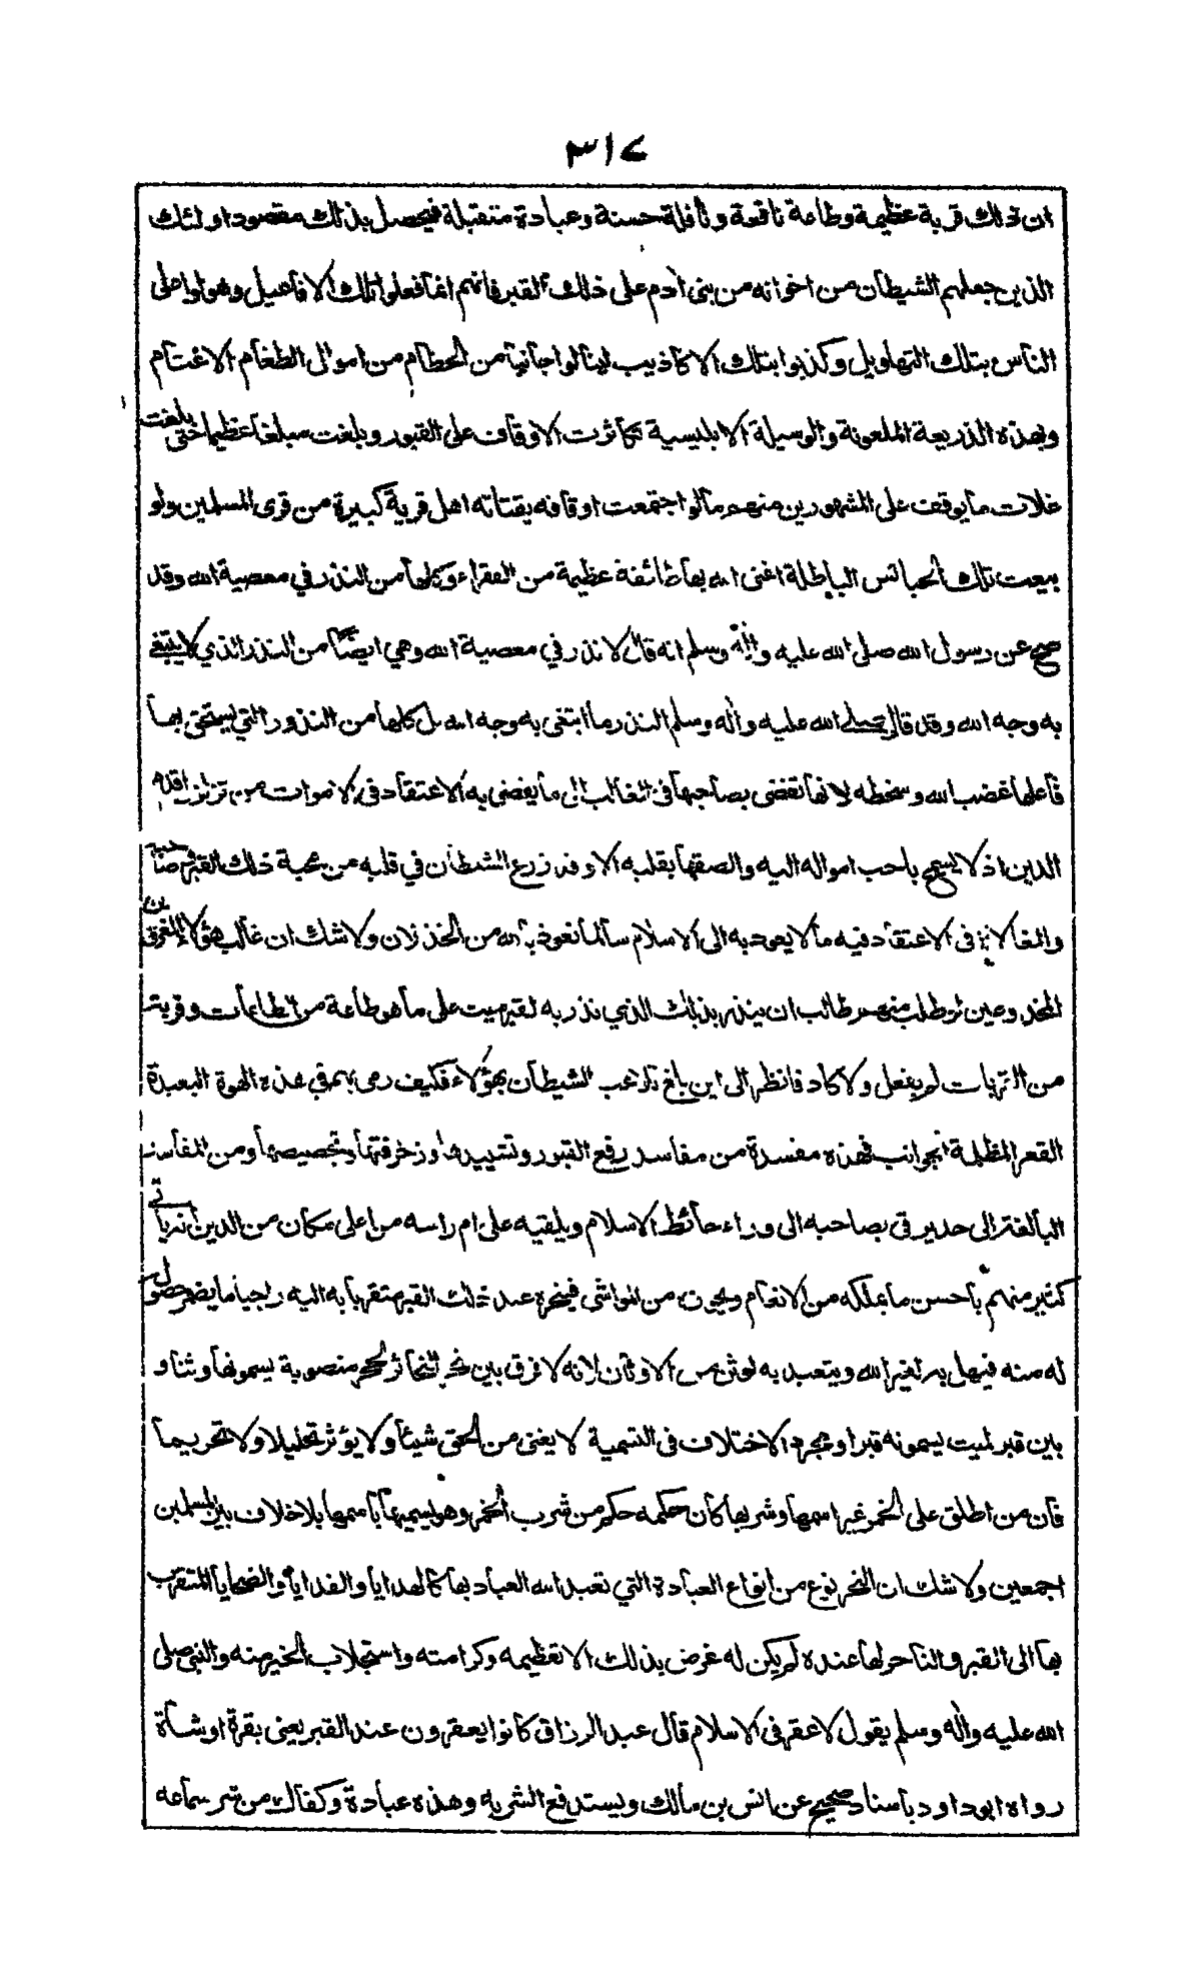 ٣١٧
ان ذلك قربة عظيمة وطاعة نافعة ونافلة حسنة وعبادة متقبلة فيحصل بذلك مقصود اولئك
الذين جعلهم الشيطان من اخوانه من بنى أدم على ذلك القبر فانهم انما فعلوا تلك الافاعيل وهولوا على
الناس بتلك التهاويل وكذبوا بتلك الاكاذيب لينالوا جانبا من الحطام من اموال الطغام الاغتام
وبهذه الذريعة الملعونة والوسيلة الابليسية تكاثرت الاوقاف على القبور وبلغت مبلغا عظيما حتى بلغت
غلات ما يوقف على المشهورين منهم ما لو اجتمعت اوقافه يقتاته اهل قرية كبيرة من قرى المسلمين ولو
بيعت تلك الحبائس الباطلة اغنى الله بها طائفة عظيمة من الفقراء وكلها من النذر في معصية الله وقد
صح عن رسول الله صلى الله عليه واله وسلم انه قال لا نذر في معصية الله وهي ايضا من النذر الذي لا يبتغى
به وجه الله وقد قال صلى الله عليه واله وسلم النذر ما ابتغى به وجه الله بل كلها من النذور التي يستحق بها
فاعلها غضب الله وسخطه لانها تفضى بصاحبها فى الغالب الى ما يفضى به الاعتقاد فى الاموات من تزلزل قدم
الدين اذ لا يسمح باحب امواله اليه والصقها بقلبه الا وقد زرع الشيطان في قلبه من محبة ذلك القبر وصاحبه
والمغالاة فى الاعتقاد فيه ما لا يعود به الى الاسلام سالما نعوذ بالله من الخذلان ولا شك ان غالب هؤلاء المغرورين
المخدوعين لو طلب منهم طالب ان ينذر بذلك الذي نذر به لقبر ميت على ما هو طاعة من الطاعات وقربة
من القربات لم يفعل ولا كاد فانظر الى اين بلغ تلاعب الشيطان بهؤلاء فكيف رمى بهم في هذه الهوة البعيدة
القعر المظلمة الجوانب فهذه مفسدة من مفاسد رفع القبور وتشييدها وزخرفتها وتجصيصها ومن المفاسد
البالغة الى حد يرقى بصاحبه الى وراء حائط الاسلام ويلقيه على ام راسه من اعلى مكان من الدين ان يأتي
كثير منهم بأحسن ما يملكه من الانعام ويجوز من المواشى فينحره عند ذلك القبر متقربا به اليه راجيا ما يضمر حصول
له منه فيهل به لغير الله ويتعبد به لوثن من الاوثان لانه لا فرق بين نحر النحائر لحجر منصوبة يسمونها وثنا و
بين قبر لميت يسمونه قبرا ومجرد الاختلاف فى التسمية لا يغنى من الحق شيئا ولا يؤثر تحليلا ولا تحريما
فان من اطلق على الخمر غير اسمها وشربها كان حكمه حكم من شرب الخمر وهو يسميها باسمها بلا خلاف بين المسلمين
اجمعين ولا شك ان النحر نوع من انواع العبادة التي تعبد الله العباد بها كالهدايا والفدايا والضحايا المتقرب
بها الى القبر والناحر لها عنده لم يكن له غرض بذلك الا تعظيمه وكرامته واستجلاب الخير منه والنبي صلى
الله عليه واله وسلم يقول لا عقر فى الاسلام قال عبد الرزاق كانوا يعقرون عند القبر يعنى بقرة او شاة
رواه ابو داود بأسناد صحيح عن انس بن مالك ويستدفع الشر به وهذه عبادة وكفاك من شر سماعه